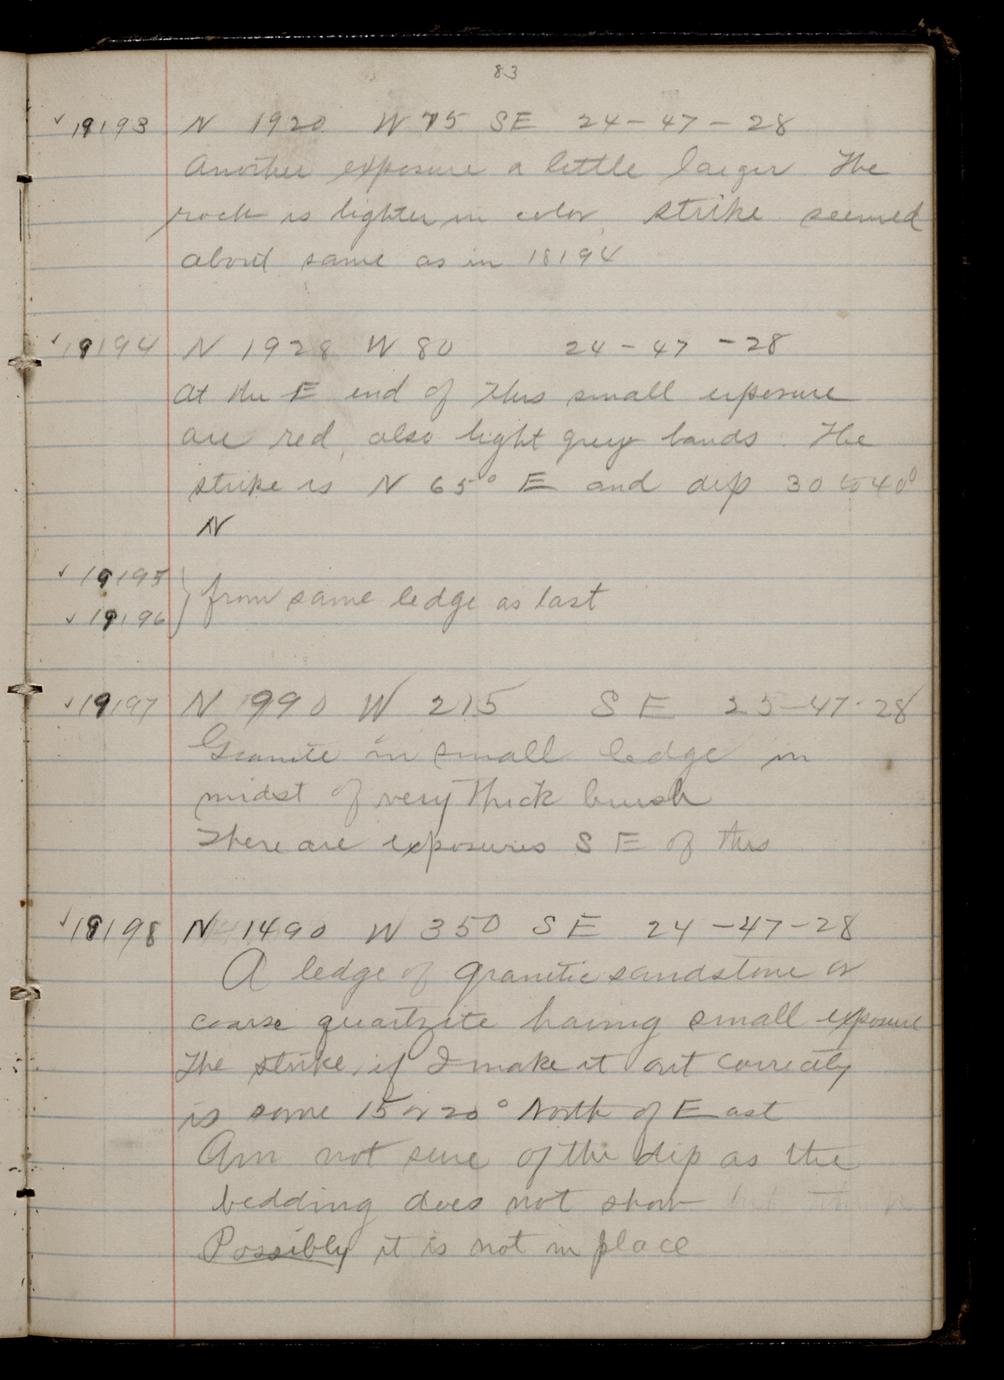 83
✓19193 N 1920 W 75 SE 24-47-28
Another exposure a little larger The
rock is lighter in color, strike seemed
about same as in 18194
✓19194 N 1928 W 80 24-47-28
At the E end of this small exposure
are red, also light grey bands. The
strike is N 65° E and dip 30 to 40°
N
✓19195
✓19196 } from same ledge as last
✓19197 N 990 W 215 SE 25-47-28
Granite in small ledge in
midst of very thick brush
There are exposures SE of this
✓19198 N 1490 W 350 SE 24-47-28
A ledge of granitic sandstone or
coarse quartzite having small exposure
The strike, if I make it out correctly
is some 15 or 20° North of East
Am not sure of the dip as the
bedding does not show
Possibly it is not in place